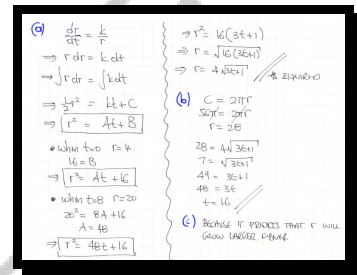 (a) dr/dt = k/r
⇒ r dr = k dt
⇒ ∫ r dr = ∫ k dt
⇒ ½r² = kt + C
⇒ r² = At + B
• when t=0 r=4
16 = B
⇒ r² = At + 16
• when t=8 r=20
20² = 8A + 16
A = 48
⇒ r² = 48t + 16
⇒ r² = 16(3t+1)
⇒ r = √16(3t+1)
⇒ r = 4√3t+1
As required
(b) C = 2πr
56π = 2πr
r = 28
28 = 4√3t+1
7 = √3t+1
49 = 3t+1
48 = 3t
t = 16
(c) Because it predicts that r will
grow larger forever